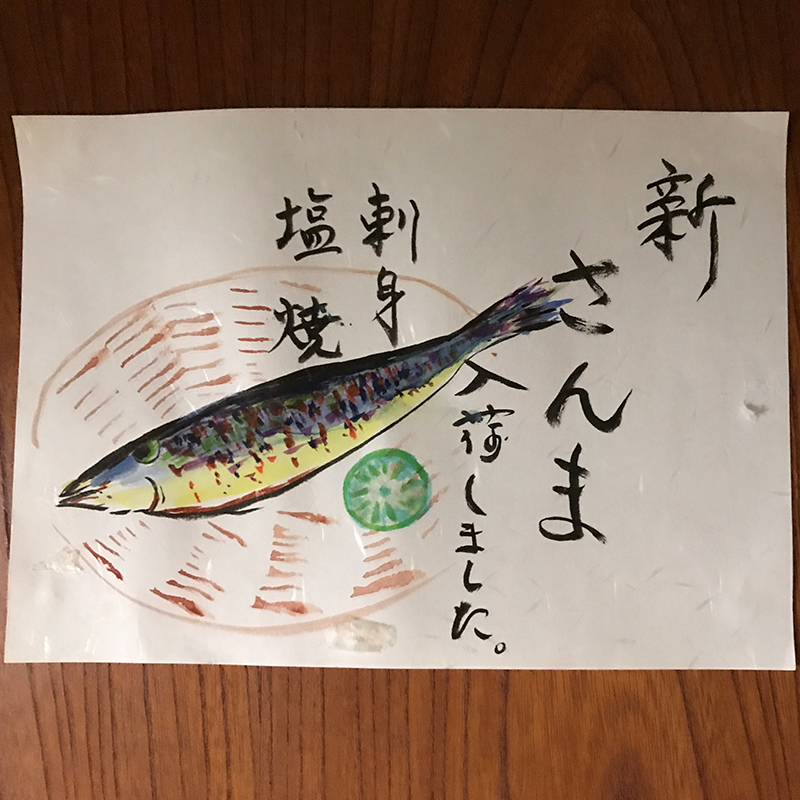 新
さんま
入荷しました。
刺身
塩焼